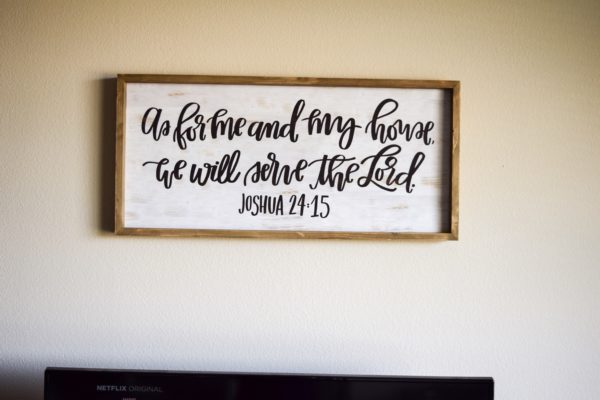 As for me and my house,
we will serve the Lord.
JOSHUA 24:15
NETFLIX ORIGINAL